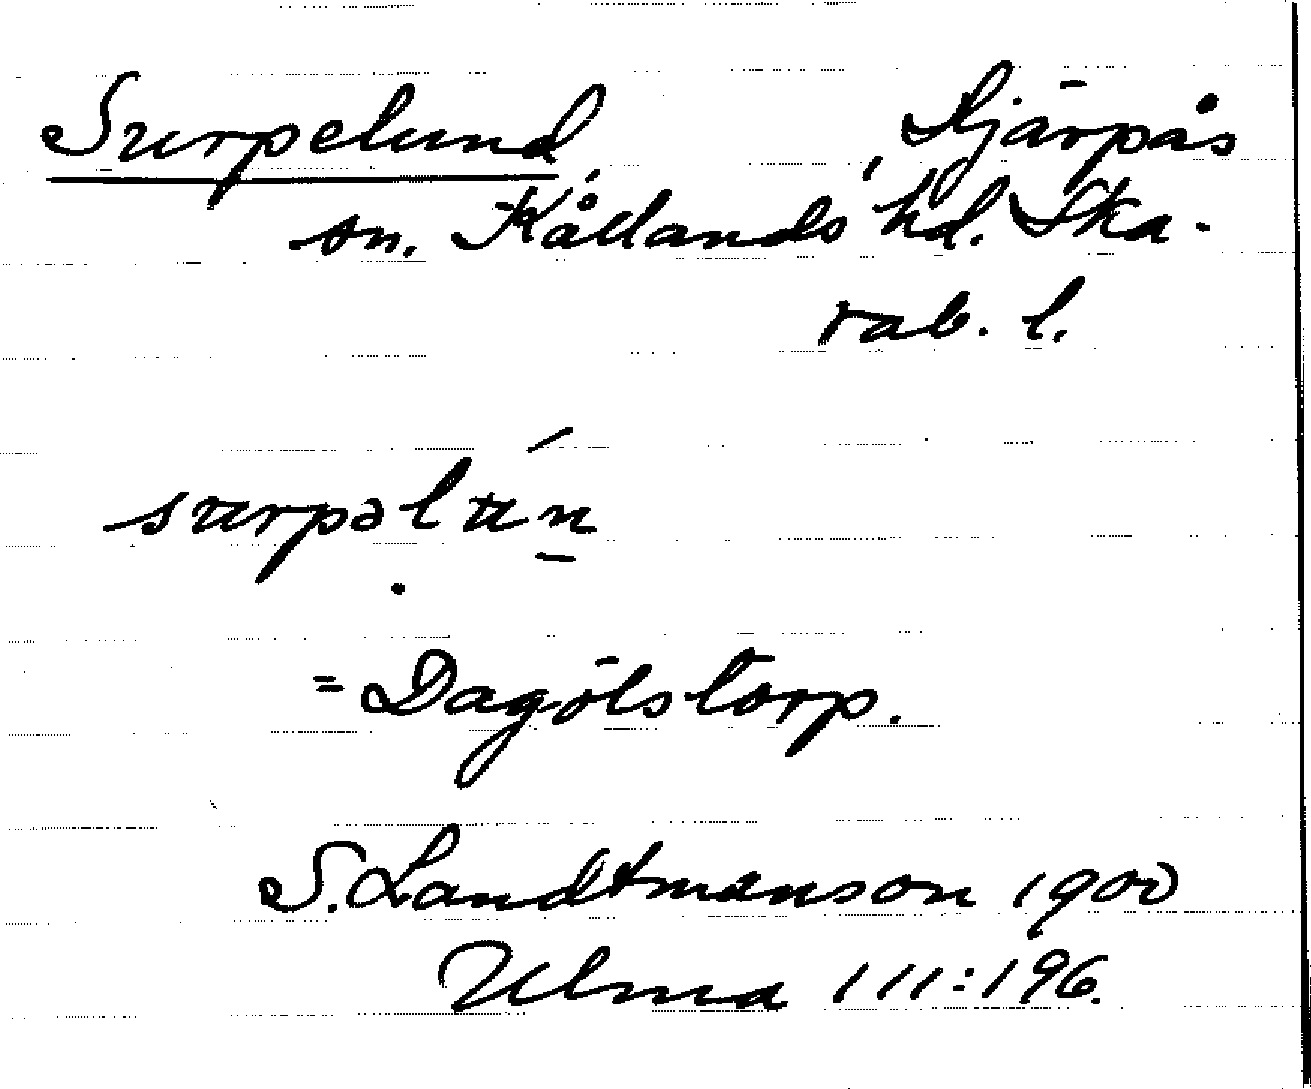 Surpelund, Sjärpås
sn. Kållands hd. Ska-
rab. l.
surpəlun
= Dagölstorp.
S. Landtmanson 1900
Ulma 111:196.